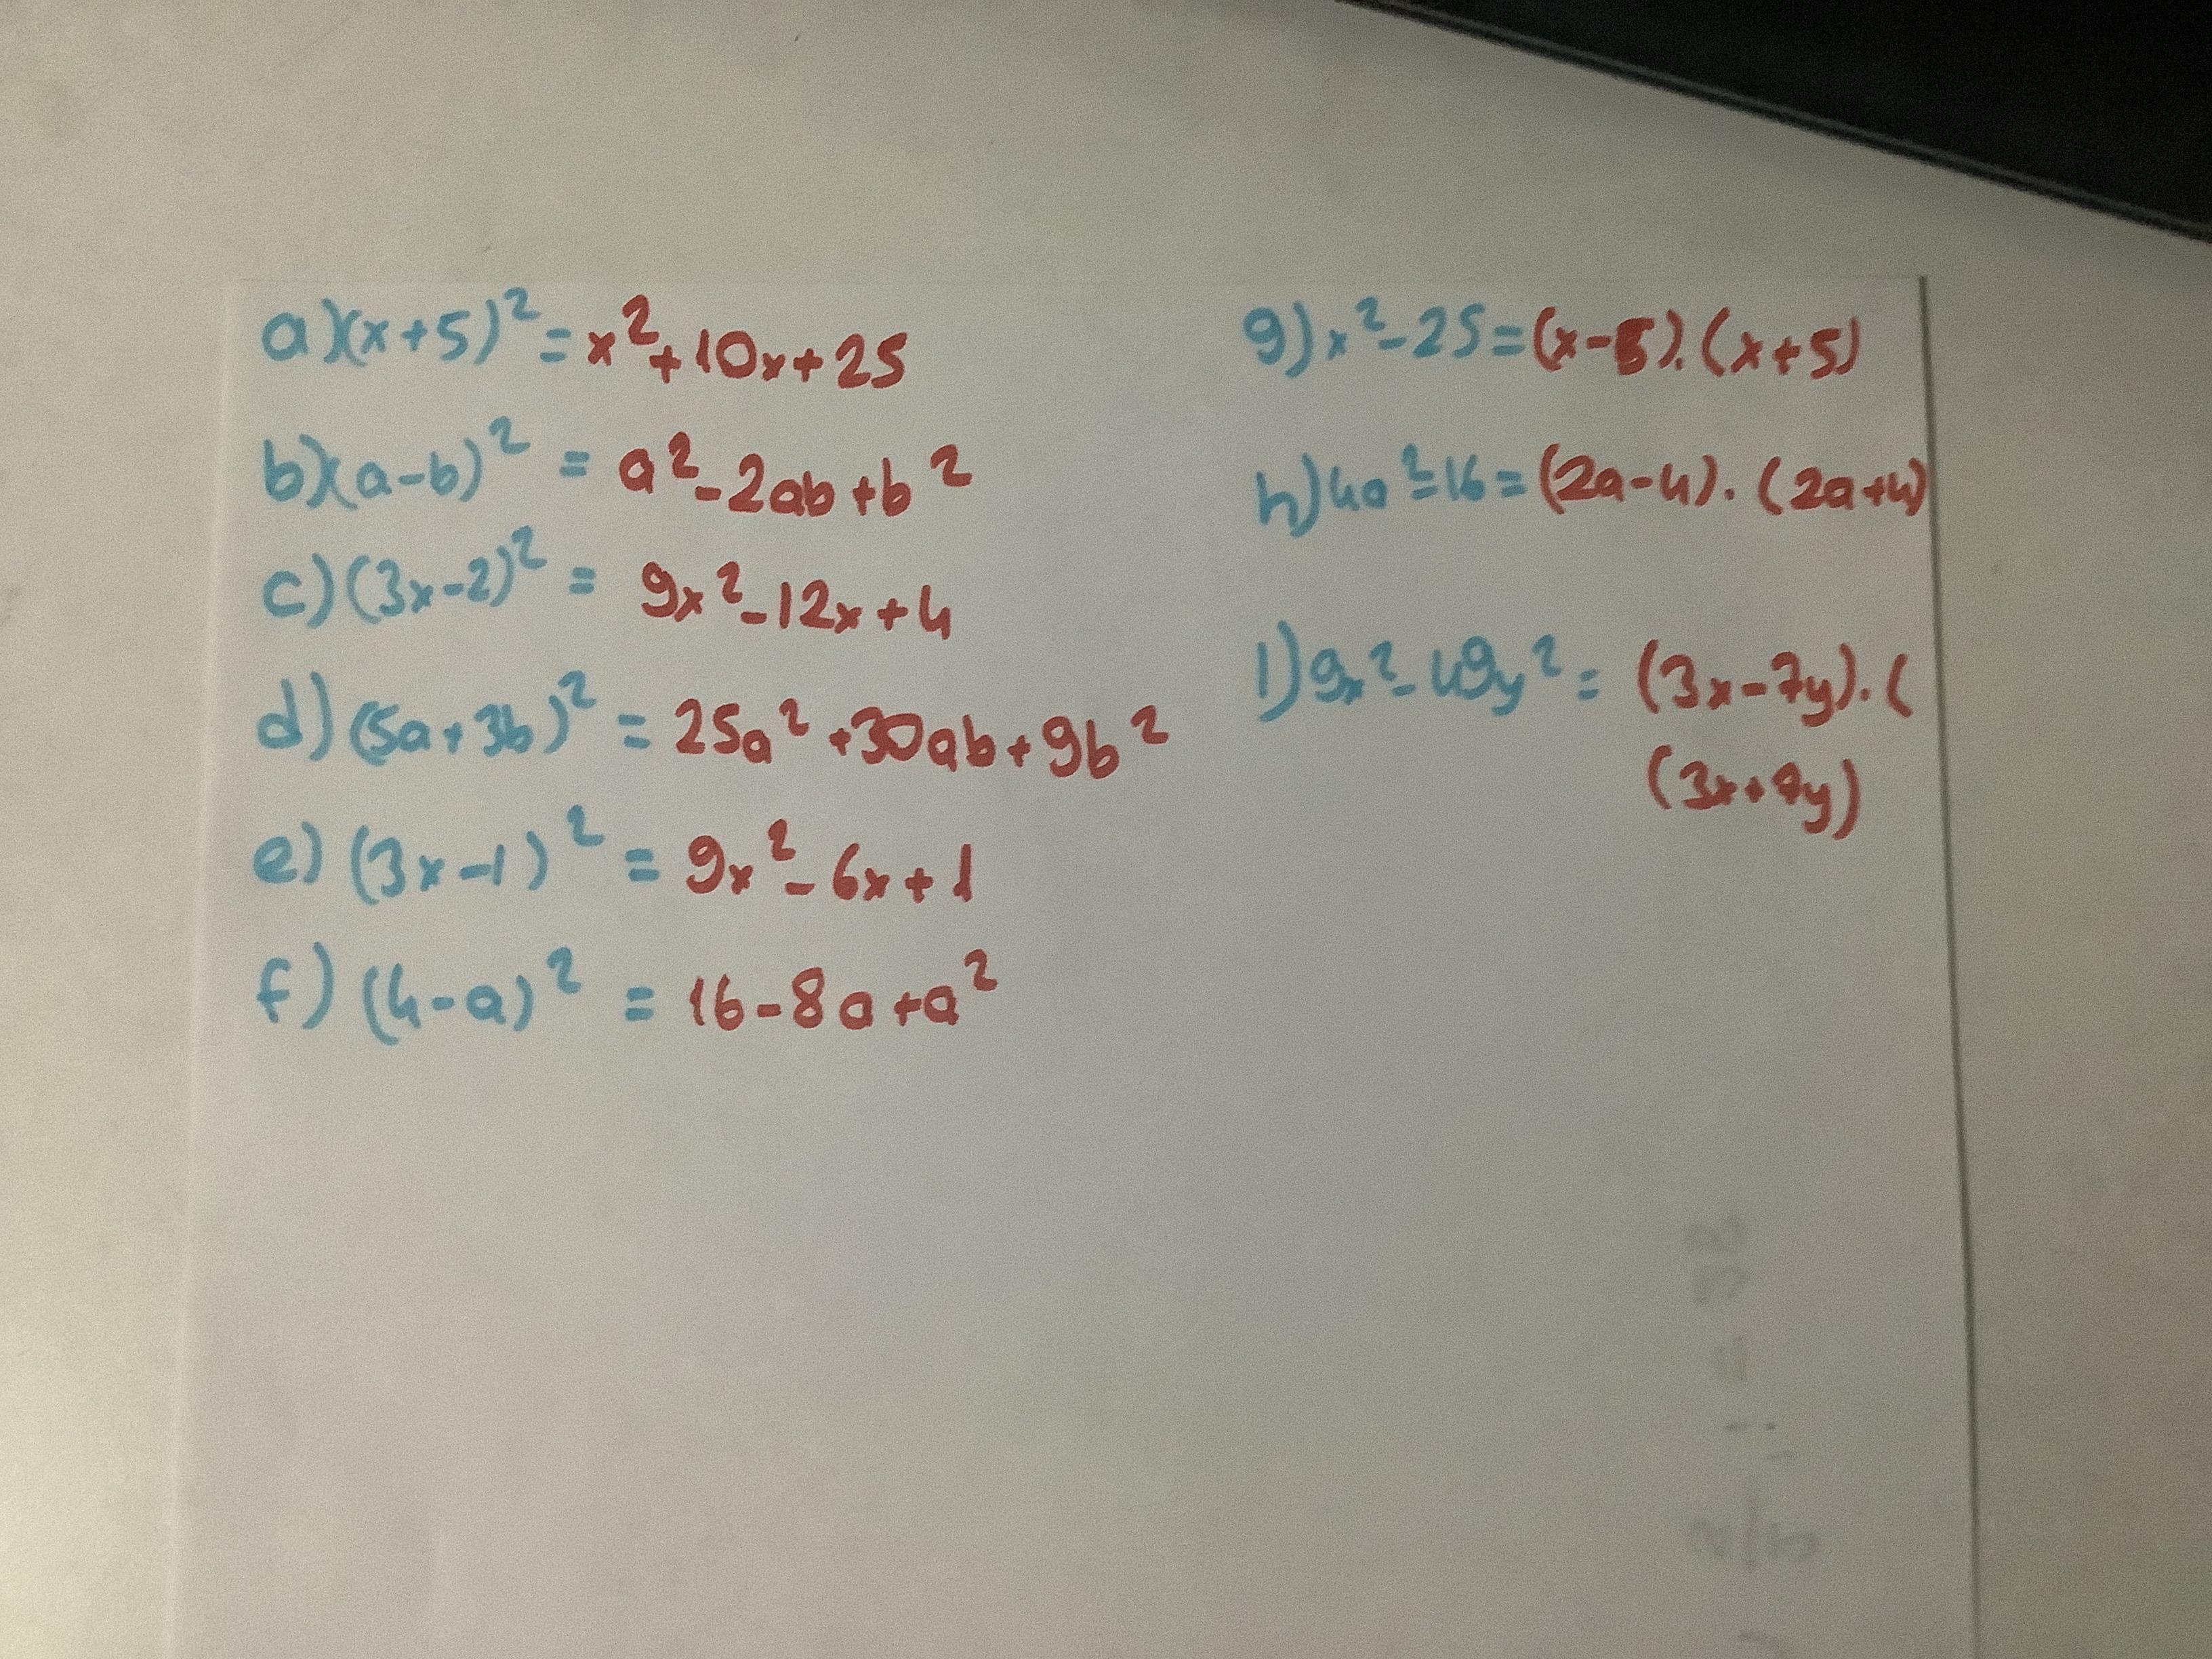 a)(x+5)²=x²+10x+25
b)(a-b)² = a²-2ab+b²
c)(3x-2)² = 9x²-12x+4
d)(5a+3b)² = 25a²+30ab+9b²
e) (3x-1)² = 9x²-6x+1
f) (4-a)² = 16-8a+a²
g)x²-25=(x-5).(x+5)
h)4a²-16=(2a-4).(2a+4)
I)9x²-49y²= (3x-7y).(
(3x+7y)